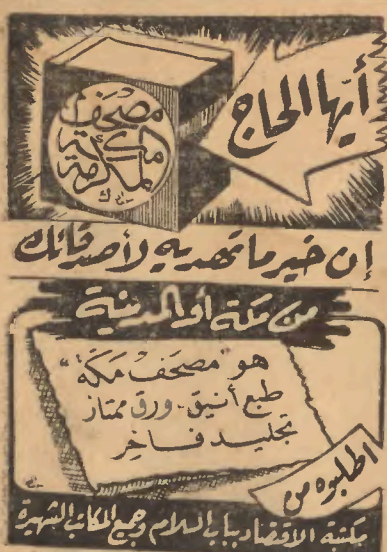 أيها الحاج
مصحف
مكة
المكرمة
إن خير ما تهديه لأصدقائك
من مكة أو المدينة
هو "مصحف مكة"
طبع أنيق - ورق ممتاز
تجليد فاخر
اطلبوه من
مكتبة الاقتصاد بباب السلام وجميع المكاتب الشهيرة